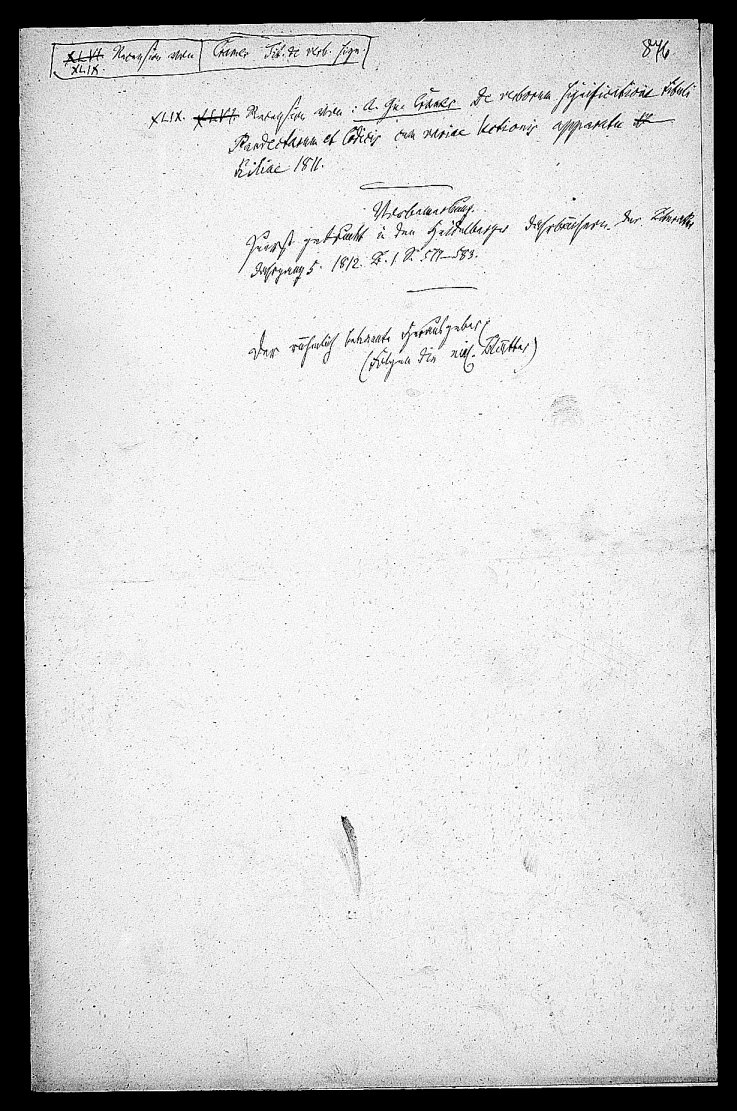 XLVI. Recension von | Cramer Tit. de verb. sign.
XLIX.
846
XLIX. XLVI. Recension von: A. Guil. Cramer De verborum significatione tituli
Pandectarum et Codicis cum variae lectionis apparatu
Kiliae 1811.
Vorbemerkung.
Zuerst gedruckt in den Heidelberger Jahrbüchern der Literatur
Jahrgang 5. 1812. B. 1 S. 577–583.
Der rühmlich bekannte Herausgeber
(Folgen die Blätter)